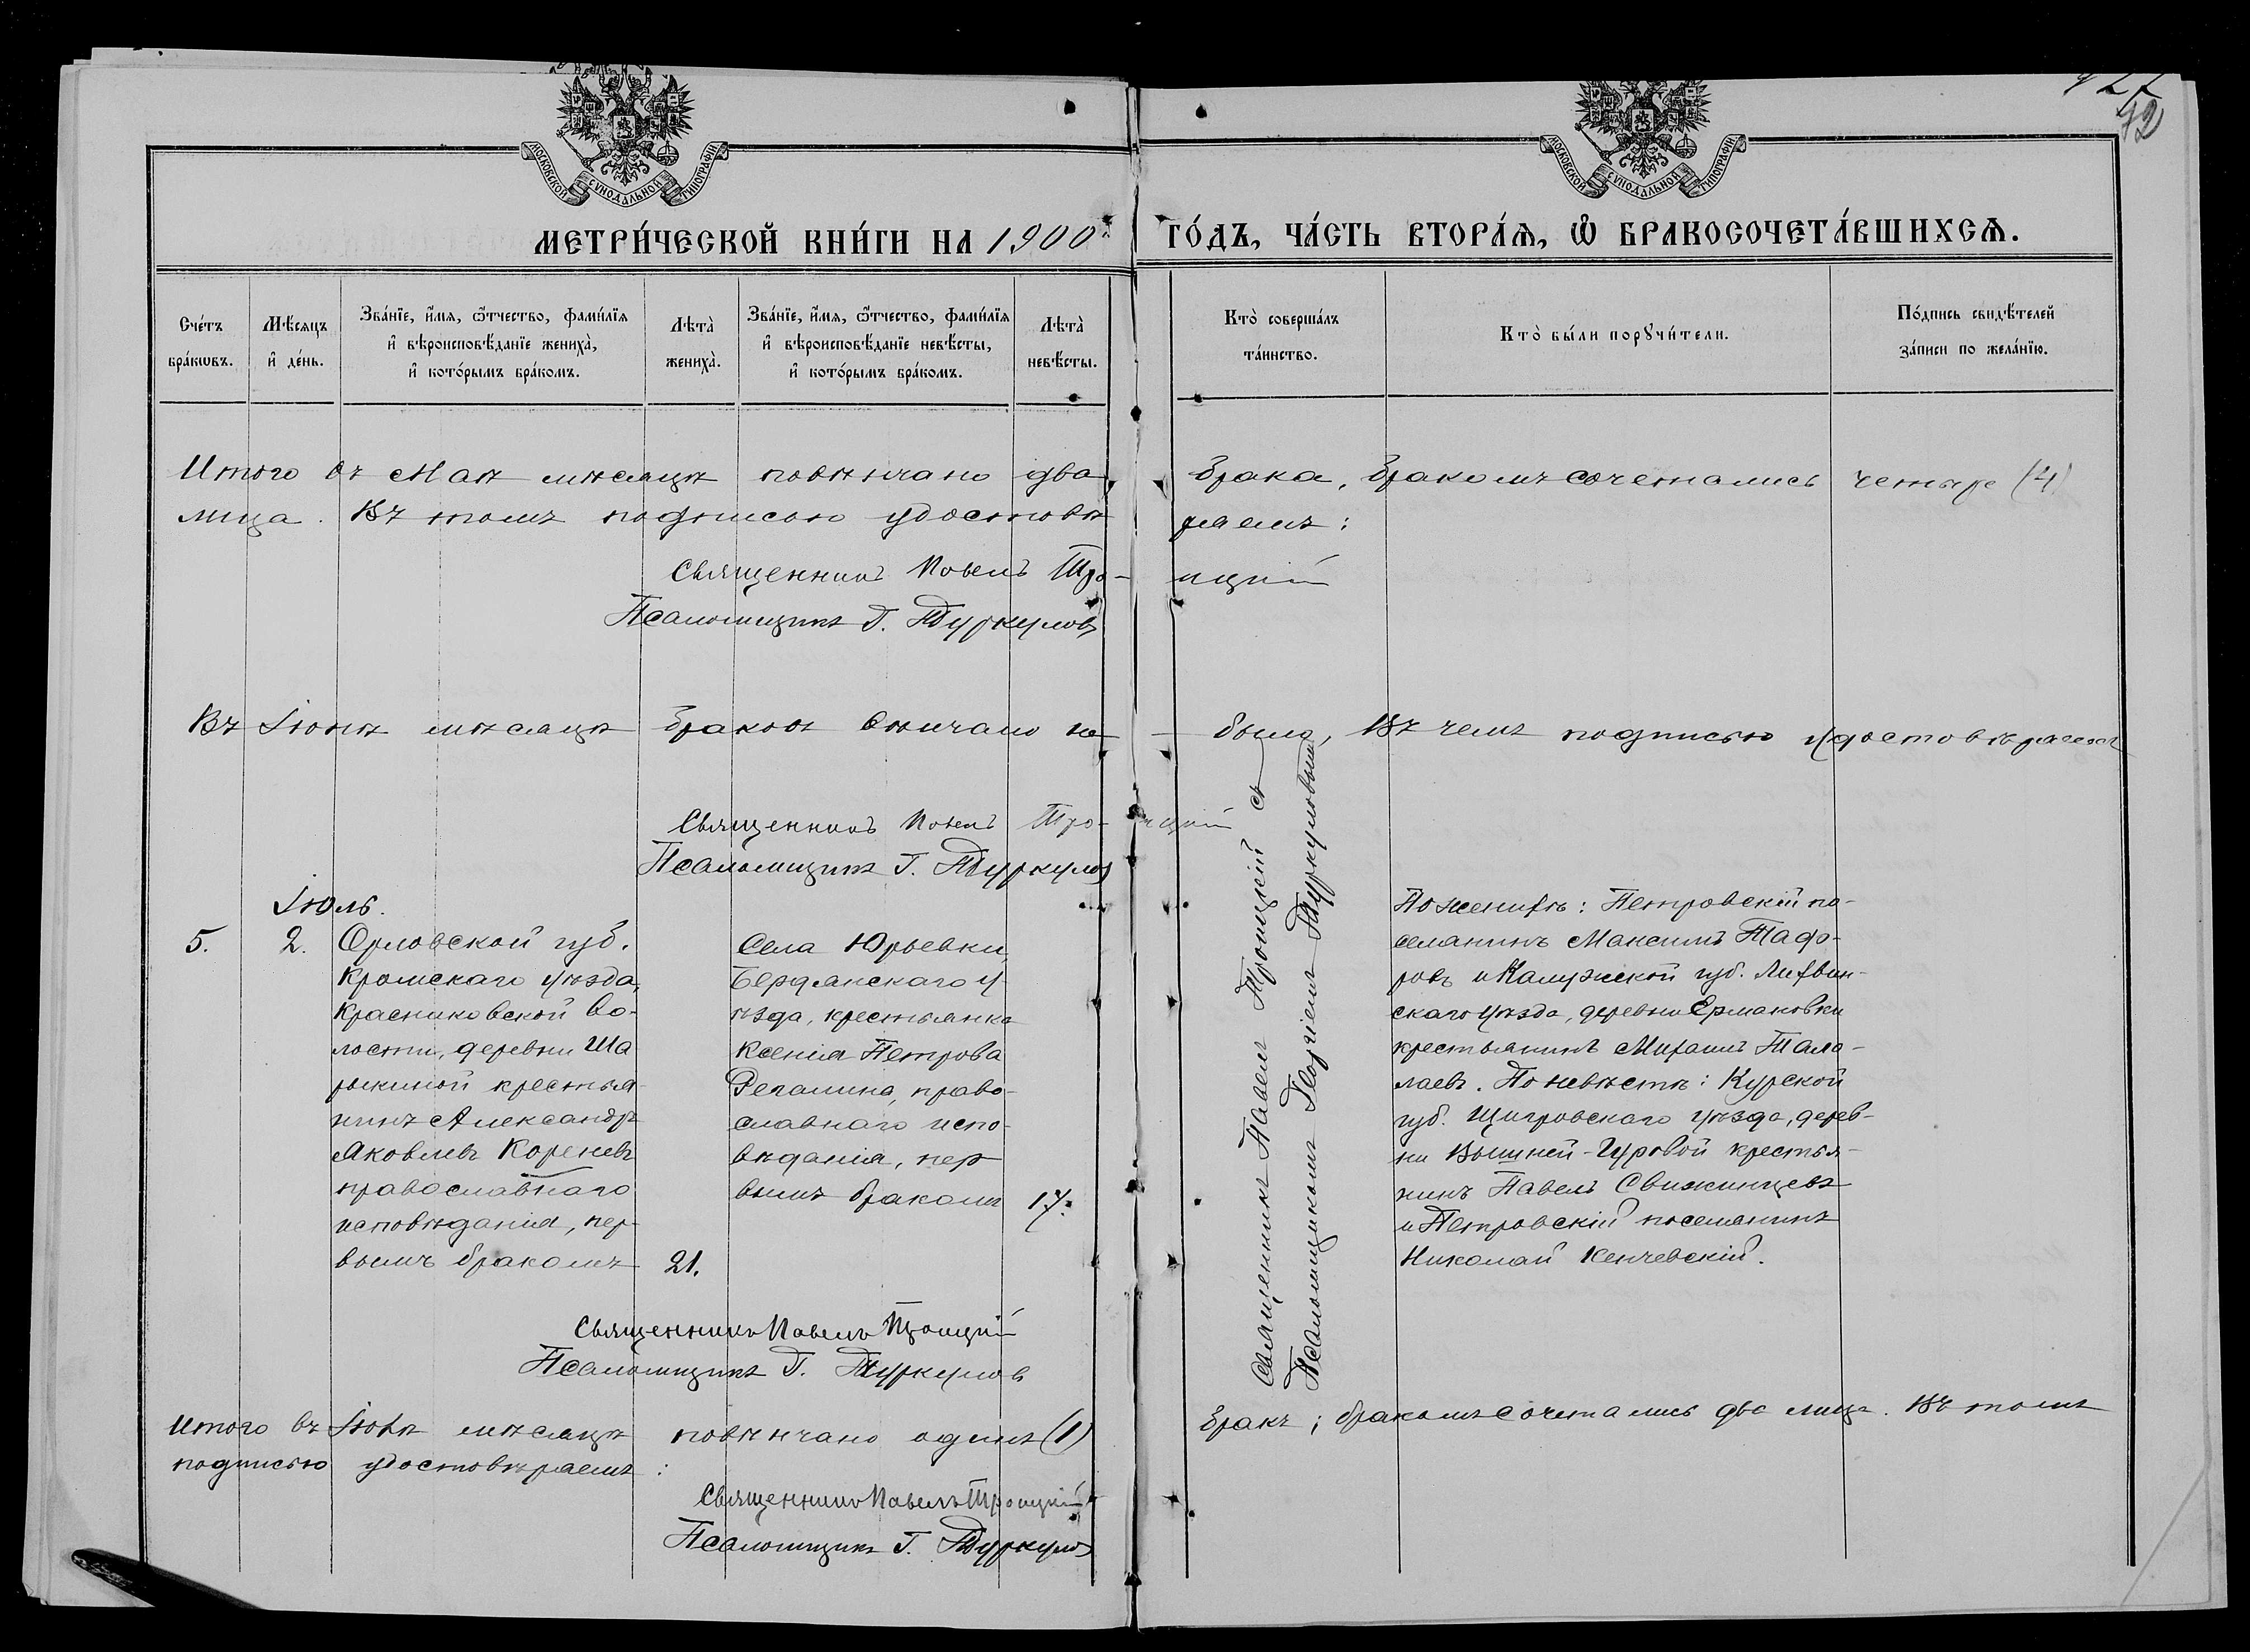 427
42
МОСКОВСКОЙ СѴНОДАЛЬНОЙ ТИПОГРАФІИ
МОСКОВСКОЙ СѴНОДАЛЬНОЙ ТИПОГРАФІИ
МЕТРИ́ЧЕСКОЙ КНИ́ГИ НА 1900 ГО́ДЪ, ЧА́СТЬ ВТОРА́Ѧ, Ѽ БРАКОСОЧЕТА́ВШИХСѦ.
Сче́тъ
бра́кѡвъ.
Мѣ́сяцъ
и҆ де́нь.
Зва́нїе, и҆́мя, ѻ҆́тчество, фами́лїя
и҆ вѣроисповѣ́данїе жениха̀,
и҆ кото́рымъ бра́комъ.
Лѣта̀
жениха̀.
Зва́нїе, и҆́мя, ѻ҆́тчество, фами́лїя
и҆ вѣроисповѣ́данїе невѣ́сты,
и҆ кото́рымъ бра́комъ.
Лѣта̀
невѣ́сты.
Кто̀ соверша́лъ
та́инство.
Кто̀ бы́ли порꙋчи́тели.
По́дпись свидѣ́телей
за́писи по жела́нїю.
Итого въ Маѣ мѣсяцѣ повѣнчано два брака, бракомъ сочетались четыре (4)
лица. Въ томъ подписью удостовѣряемъ:
Священникъ Павелъ Троицкій
Псаломщикъ Г. Туркуловъ
Въ Іюнѣ мѣсяцѣ браковъ вѣнчано не было, въ чемъ подписью удостовѣряемъ
Священникъ Павелъ Троицкій
Псаломщикъ Г. Туркулов
Іюль.
5. 2. Орловской губ.
Кромскаго уѣзда,
Красниковской во-
лости, деревни Ша
рыкиной крестья-
нинъ Александръ
Яковлевъ Кореневъ
православнаго
исповѣданія, пер-
вымъ бракомъ 21.
Села Юрьевки,
Бердянскаго у-
ѣзда, крестьянка
Ксенія Петрова
Репалина, право-
славнаго испо-
вѣданія, пер
вымъ бракомъ 17.
Священникъ Павелъ Троицкій съ
Псаломщикомъ Георгіемъ Туркуловымъ
По женихѣ: Петровскій по-
селянинъ Максимъ Тафо-
ровъ и Калужской губ. Лихвин-
скаго уѣзда, деревни Ермаковки
крестьянинъ Михаилъ Тала-
лаевъ. По невѣстѣ: Курской
губ. Щигровскаго уѣзда, дерев-
ни Вышней-Гуровой крестья-
нинъ Павелъ Свиженцевъ
и Петровскій поселянинъ
Николай Кенчевскій.
Священникъ Павелъ Троицкій
Псаломщикъ Г. Туркулов
Итого въ Іюлѣ мѣсяцѣ повѣнчано одинъ (1) бракъ; бракомъ сочетались два лица. Въ томъ
подписью удостовѣряемъ:
Священникъ Павелъ Троицкій
Псаломщикъ Г. Туркулов